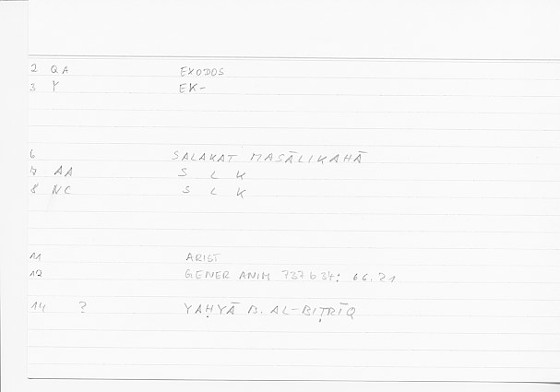 2 QA EXODOS
3 Y EK-
6 SALAKAT MASĀLIKAHĀ
7 AA S L K
8 NC S L K
11 ARIST
12 GENER ANIM 737b34: 66.21
14 ? YAḤYĀ B. AL-BIṬRĪQ